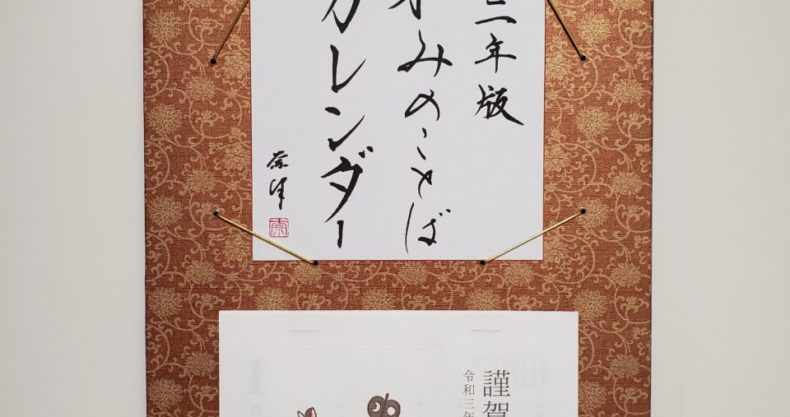 三年版
みのことば
カレンダー
謹賀
令和三年